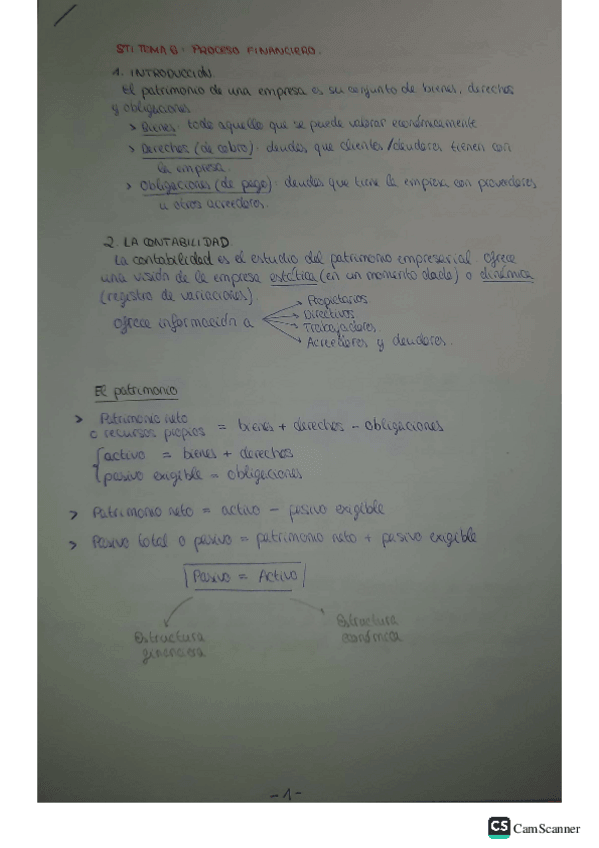 STI TEMA 8: PROCESO FINANCIERO.
1. INTRODUCCIÓN
El patrimonio de una empresa es su conjunto de bienes, derechos
y obligaciones
> Bienes: todo aquello que se puede valorar económicamente
> Derechos (de cobro): deudas que clientes/deudores tienen con
la empresa.
> Obligaciones (de pago): deudas que tiene la empresa con proveedores
u otros acreedores.
2. LA CONTABILIDAD
La contabilidad es el estudio del patrimonio empresarial. Ofrece
una visión de la empresa estática (en un momento dado) o dinámica
(registro de variaciones).
Ofrece información a
Propietarios
Directivos
Trabajadores
Acreedores y deudores.
El patrimonio
> Patrimonio neto
o recursos propios = bienes + derechos - obligaciones
activo = bienes + derechos
pasivo exigible = obligaciones
> Patrimonio neto = activo - pasivo exigible
> Pasivo total o pasivo = patrimonio neto + pasivo exigible
Pasivo = Activo
Estructura
financiera
Estructura
económica
-1-
CS CamScanner